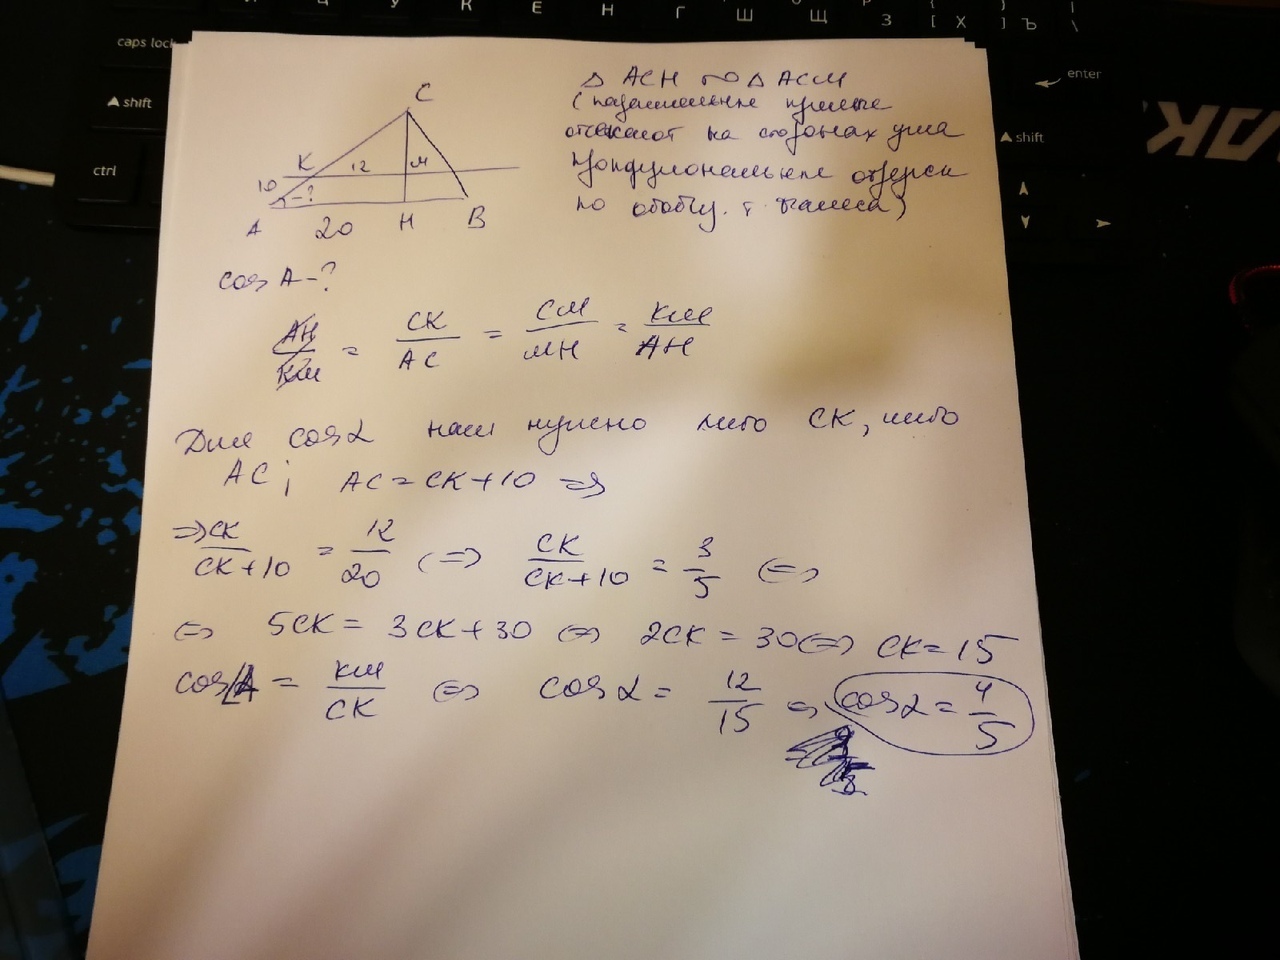 caps lock
shift
ctrl
Й Ц У К Е Н Г Ш Щ З Х Ъ
enter
shift
C
K 12 M
10
-?
A 20 H B
△ ACH ∾ △ ACM
(параллельные прямые
отсекают на сторонах угла
пропорциональные отрезки
по обобщ. т. Фалеса)
cos A-?
AH/KM = CK/AC = CM/MH = KM/AH
Для cos α нам нужно либо CK, либо
AC; AC = CK+10 =>
=> CK/CK+10 = 12/20 <=> CK/CK+10 = 3/5 <=>
<=> 5CK = 3CK+30 <=> 2CK = 30 <=> CK=15
cos A = KM/CK <=> cos α = 12/15 <=> cos α = 4/5